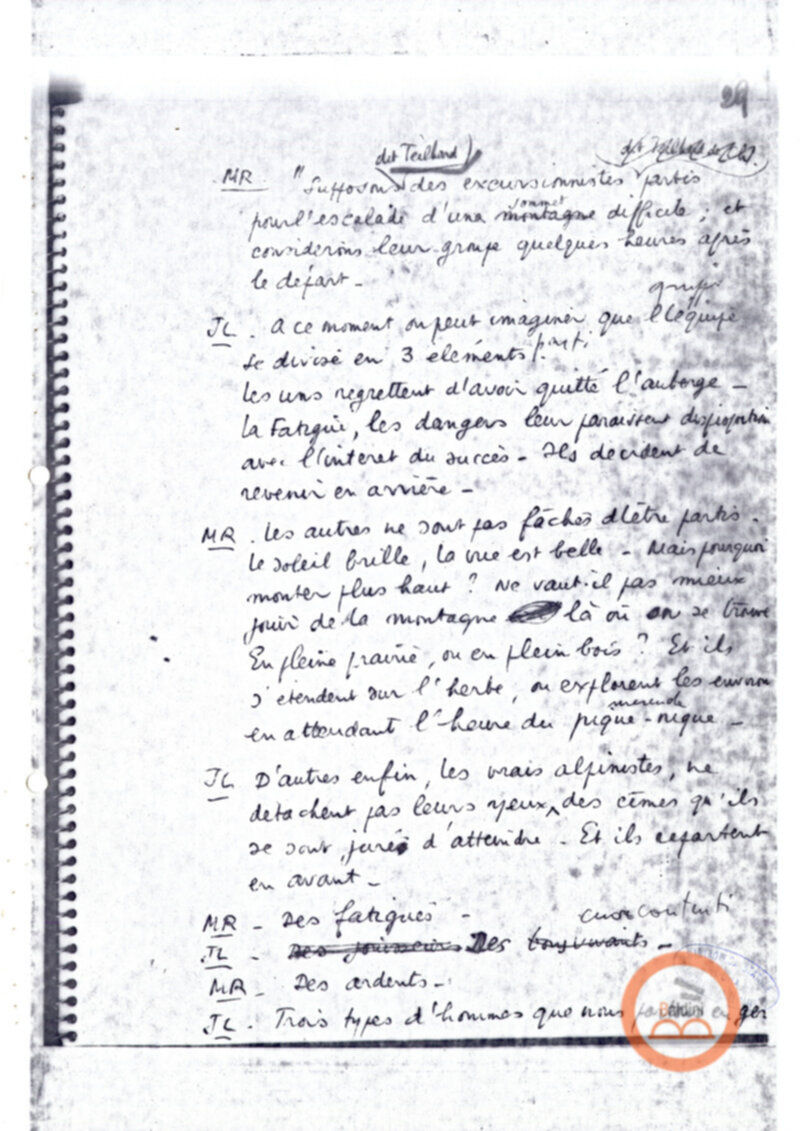 29
dit Teilhard
MR. "Supposons des excursionnistes partis
sommet
pour l'escalade d'une montagne difficile, et
considérons leur groupe quelques heures après
le départ -
JL. A ce moment on peut imaginer que l'équipe
se divise en 3 eléments.
Les uns regrettent d'avoir quitté l'auberge -
La Fatigue, les dangers leur paraissent disproportion
avec l'interet du succès - Ils decident de
revenir en arrière -
MR. Les autres ne sont pas fâches d'être partis.
Le soleil brille, la vue est belle - Mais pourquoi
monter plus haut ? Ne vaut-il pas mieux
jouir de la montagne là où on se trouve
En pleine prairie, ou en plein bois ? Et ils
s'étendent sur l'herbe, ou explorent les environ
merenda
en attendant l'heure du pique-nique -
JL D'autres enfin, les vrais alpinistes, ne
detachent pas leurs yeux des cîmes qu'ils
se sont jurés d'atteindre - Et ils repartent
en avant -
MR - Des fatigués -
cuor contenti
JL - Des jouisseurs Des bons vivants -
MR - Des ardents -
JL. Trois types d'hommes que nous en ger